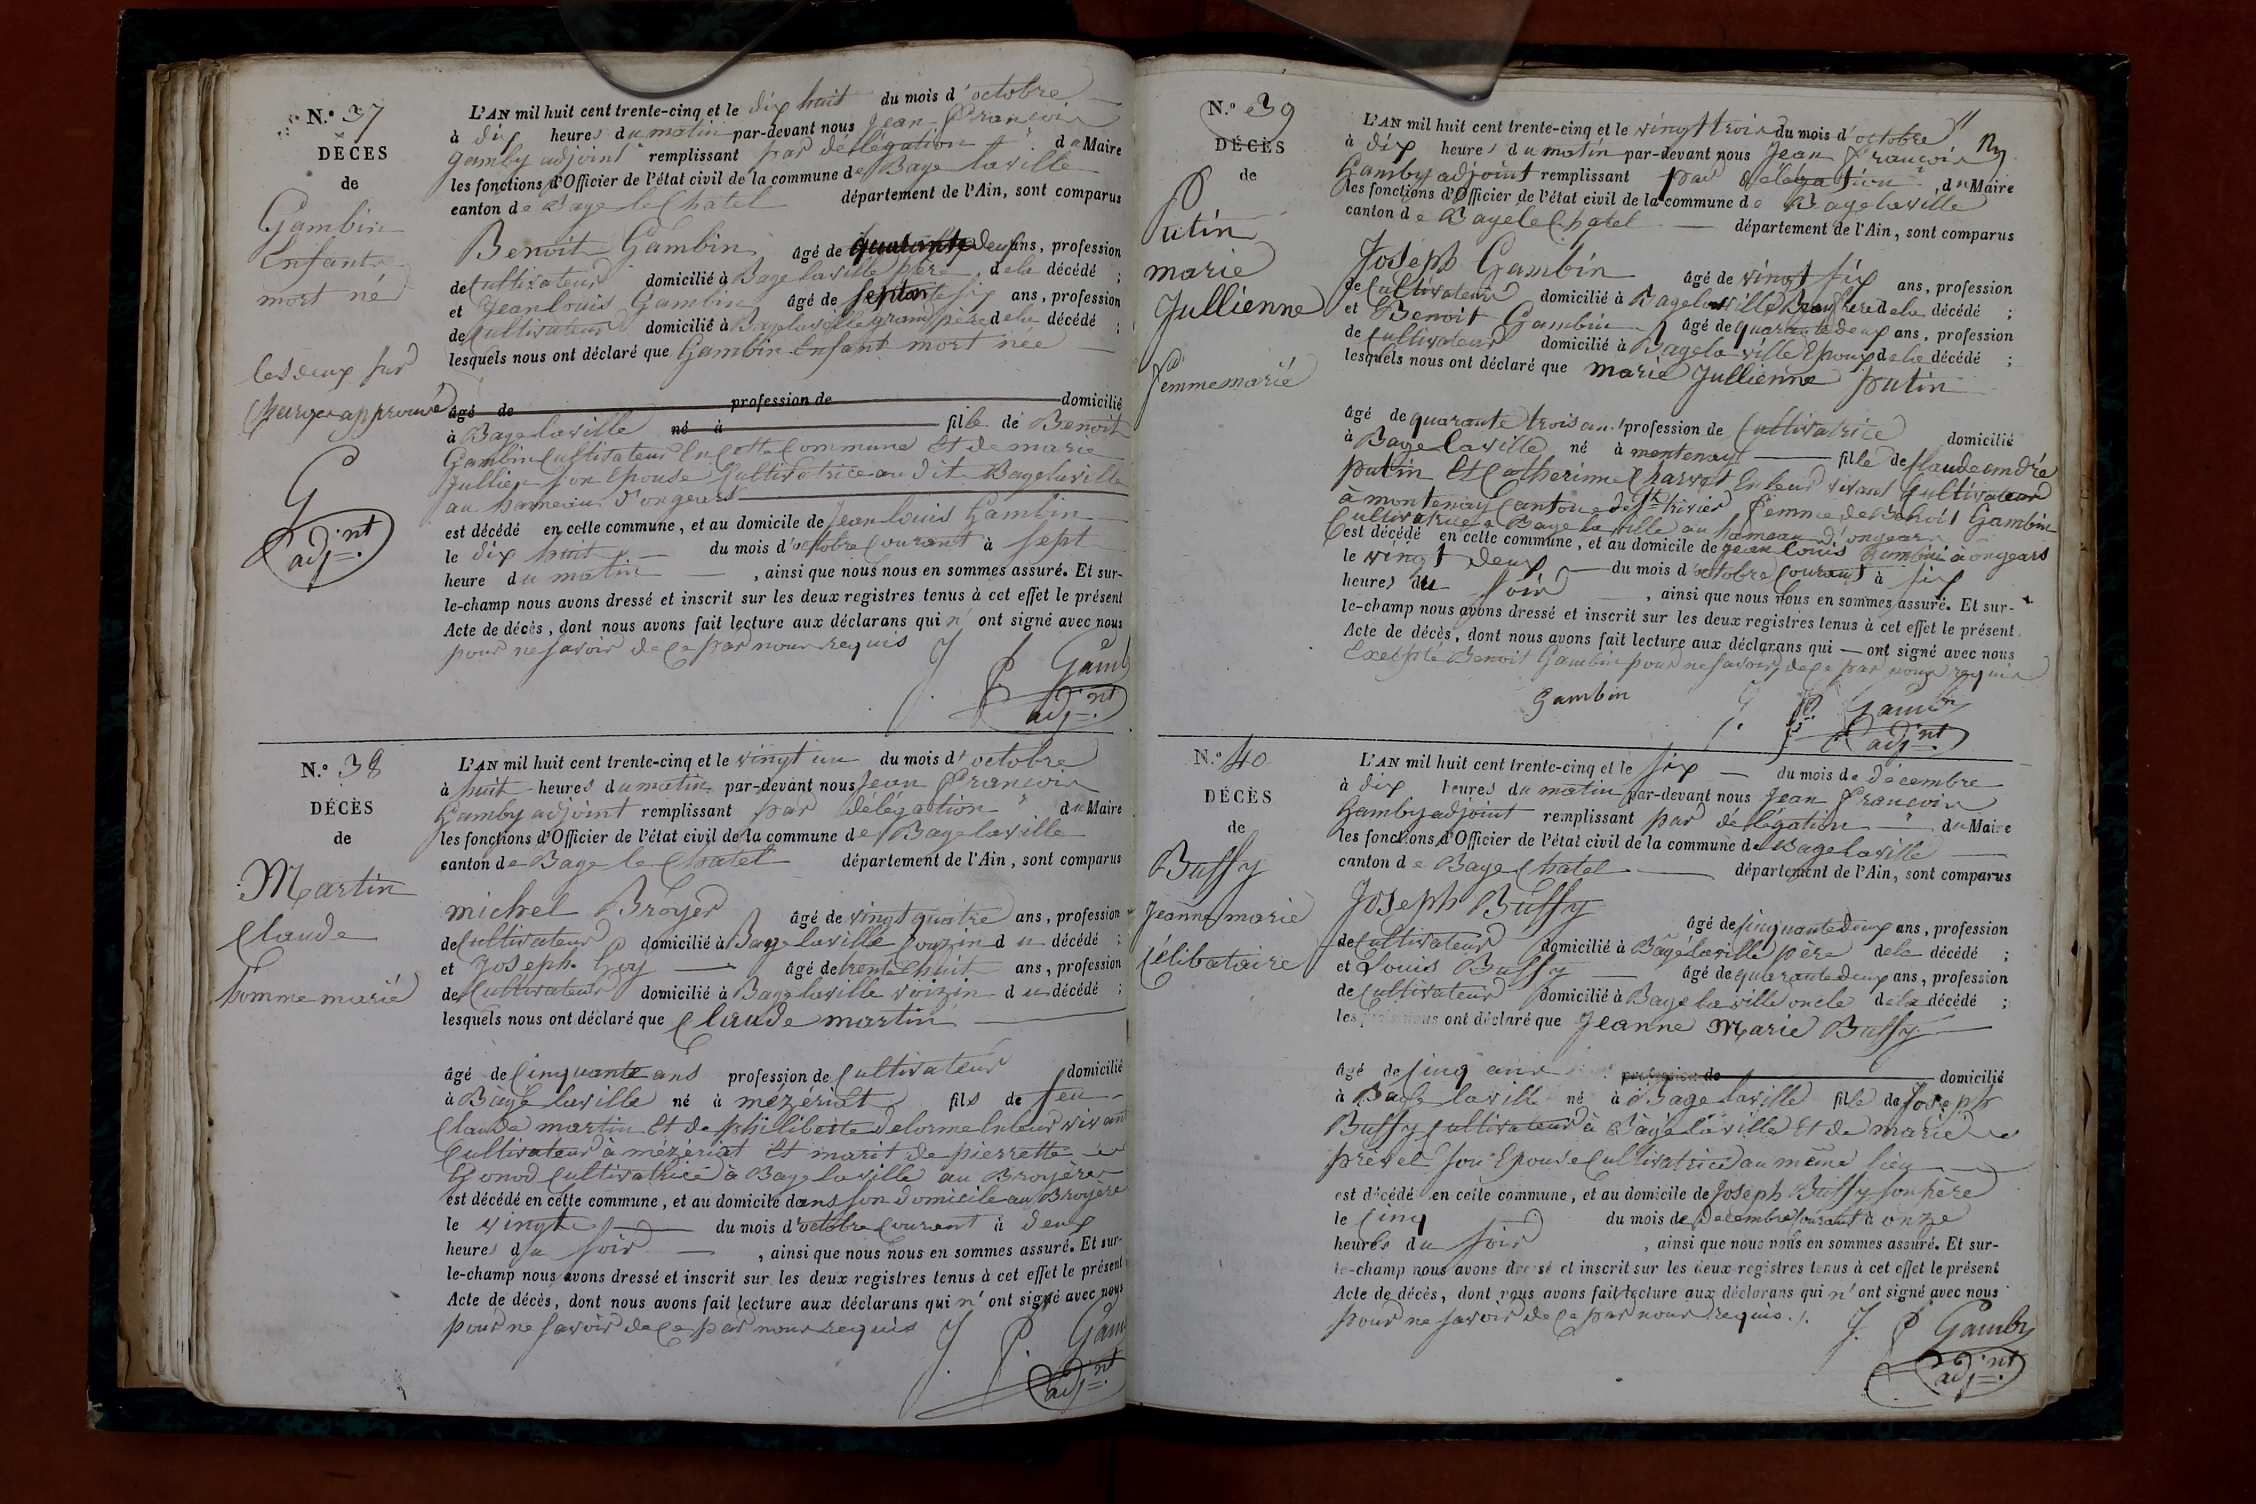 N.º 37
DÉCÈS
de
Gambin
Enfant
mort né
les deux sur
charges approuvé
G
adj.nt
L'AN mil huit cent trente-cinq et le dix huit du mois d'octobre
à dix heures du matin par-devant nous Jean François
Gamby adjoint remplissant par délégation du Maire
les fonctions d'Officier de l'état civil de la commune de Bage laville
canton de Bage le Chatel département de l'Ain, sont comparus
Benoit Gambin âgé de quarante deux ans, profession
de Cultivateur domicilié à Bage laville père de la décédé ;
et Jean louis Gambin âgé de septante six ans, profession
de Cultivateur domicilié à Bage laville grand père de la décédé ;
lesquels nous ont déclaré que Gambin Enfant mort née
âgé de profession de domicilié
à Bage laville né à fille de Benoit
Gambin Cultivateur En cette Commune Et de marie
Jullien son Epouse Cultivatrice au dit Bage laville
au hameau d'ongears
est décédé en cette commune, et au domicile de Jean louis Gambin
le dix huit du mois d'octobre Courant à sept
heure du matin , ainsi que nous nous en sommes assuré. Et sur-
le-champ nous avons dressé et inscrit sur les deux registres tenus à cet effet le présent
Acte de décès, dont nous avons fait lecture aux déclarans qui n' ont signé avec nous
pour ne savoir de ce par nous requis J. F. Gamb
adj.nt
N.º 38
DÉCÈS
de
Martin
Claude
homme marié
L'AN mil huit cent trente-cinq et le vingt un du mois d'octobre
à huit heures du matin par-devant nous Jean François
Gamby adjoint remplissant par délégation du Maire
les fonctions d'Officier de l'état civil de la commune de Bage laville
canton de Bage le Chatel département de l'Ain, sont comparus
michel Broyer âgé de vingt quatre ans, profession
de Cultivateur domicilié à Bage laville Couzin du décédé ;
et Joseph Goy âgé de trente huit ans, profession
de Cultivateur domicilié à Bage laville voizin du décédé ;
lesquels nous ont déclaré que Claude martin
âgé de Cinquante ans profession de Cultivateur domicilié
à Bage laville né à mézériat fils de feu
Claude martin Et de philiberte Delorme En leur vivant
Cultivateur à mézériat Et marit de pierrette
Gonod Cultivatrice à Bage laville au Broyère
est décédé en cette commune, et au domicile dans son domicile au Broyère
le vingt du mois d'octobre Courant à deux
heures du soir , ainsi que nous nous en sommes assuré. Et sur-
le-champ nous avons dressé et inscrit sur les deux registres tenus à cet effet le présent
Acte de décès, dont nous avons fait lecture aux déclarans qui n' ont signé avec nous
pour ne savoir de ce par nous requis J. F. Gam
adj.nt
N.º 39
DÉCÈS
de
Putin
marie
Jullienne
femme marié
L'AN mil huit cent trente-cinq et le vingt trois du mois d'octobre
à dix heures du matin par-devant nous Jean François
Gamby adjoint remplissant par délégation , du Maire
les fonctions d'Officier de l'état civil de la commune de Bage laville
canton de Bage le Chatel département de l'Ain, sont comparus
Joseph Gambin âgé de vingt six ans, profession
de Cultivateur domicilié à Bage laville Beau frere de la décédé ;
et Benoit Gambin âgé de quarante deux ans, profession
de Cultivateur domicilié à Bage la ville Epoux de la décédé ;
lesquels nous ont déclaré que marie Jullienne putin
âgé de quarante trois ans profession de Cultivatrice domicilié
à Bage laville né à montenay fille de Claude andré
putin Et Catherine Charvet En leur vivant Cultivateur
a montenay Canton de St trivier femme de Benoit Gambin
Cultivatrice a Bage la ville au hameau d'ongears
est décédé en cette commune, et au domicile de Jean louis Gambin à ongears
le vingt deux du mois d'octobre Courant à six
heures du soir , ainsi que nous nous en sommes assuré. Et sur-
le-champ nous avons dressé et inscrit sur les deux registres tenus à cet effet le présent
Acte de décès, dont nous avons fait lecture aux déclarans qui — ont signé avec nous
Excepté Benoit Gambin pour ne savoir de ce par nous requis
Gambin J. F. Gamby
adj.nt
N.º 40
DÉCÈS
de
Buffy
Jeanne marie
Célibataire
L'AN mil huit cent trente-cinq et le six du mois de décembre
à dix heures du matin par-devant nous Jean François
Gamby adjoint remplissant par délégation du Maire
les fonctions d'Officier de l'état civil de la commune de Bage laville
canton de Bage Chatel département de l'Ain, sont comparus
Joseph Buffy âgé de Cinquante deux ans, profession
de Cultivateur domicilié à Bage laville père de la décédé ;
et Louis Buffy âgé de quarante deux ans, profession
de Cultivateur domicilié à Bage la ville oncle de la décédé ;
lesquels nous ont déclaré que Jeanne Marie Buffy
âgé de Cinq ans profession de domicilié
à Bage laville né à Bage laville fille de Joseph
Buffy Cultivateur à Bage laville Et de marie
prevel son Epouse Cultivatrice au même lieu
est décédé en cette commune, et au domicile de Joseph Buffy son père
le Cinq du mois de Decembre Courant à onze
heures du soir , ainsi que nous nous en sommes assuré. Et sur-
le-champ nous avons dressé et inscrit sur les deux registres tenus à cet effet le présent
Acte de décès, dont nous avons fait lecture aux déclarans qui n' ont signé avec nous
pour ne savoir de ce par nous requis. J. F. Gamby
adj.nt